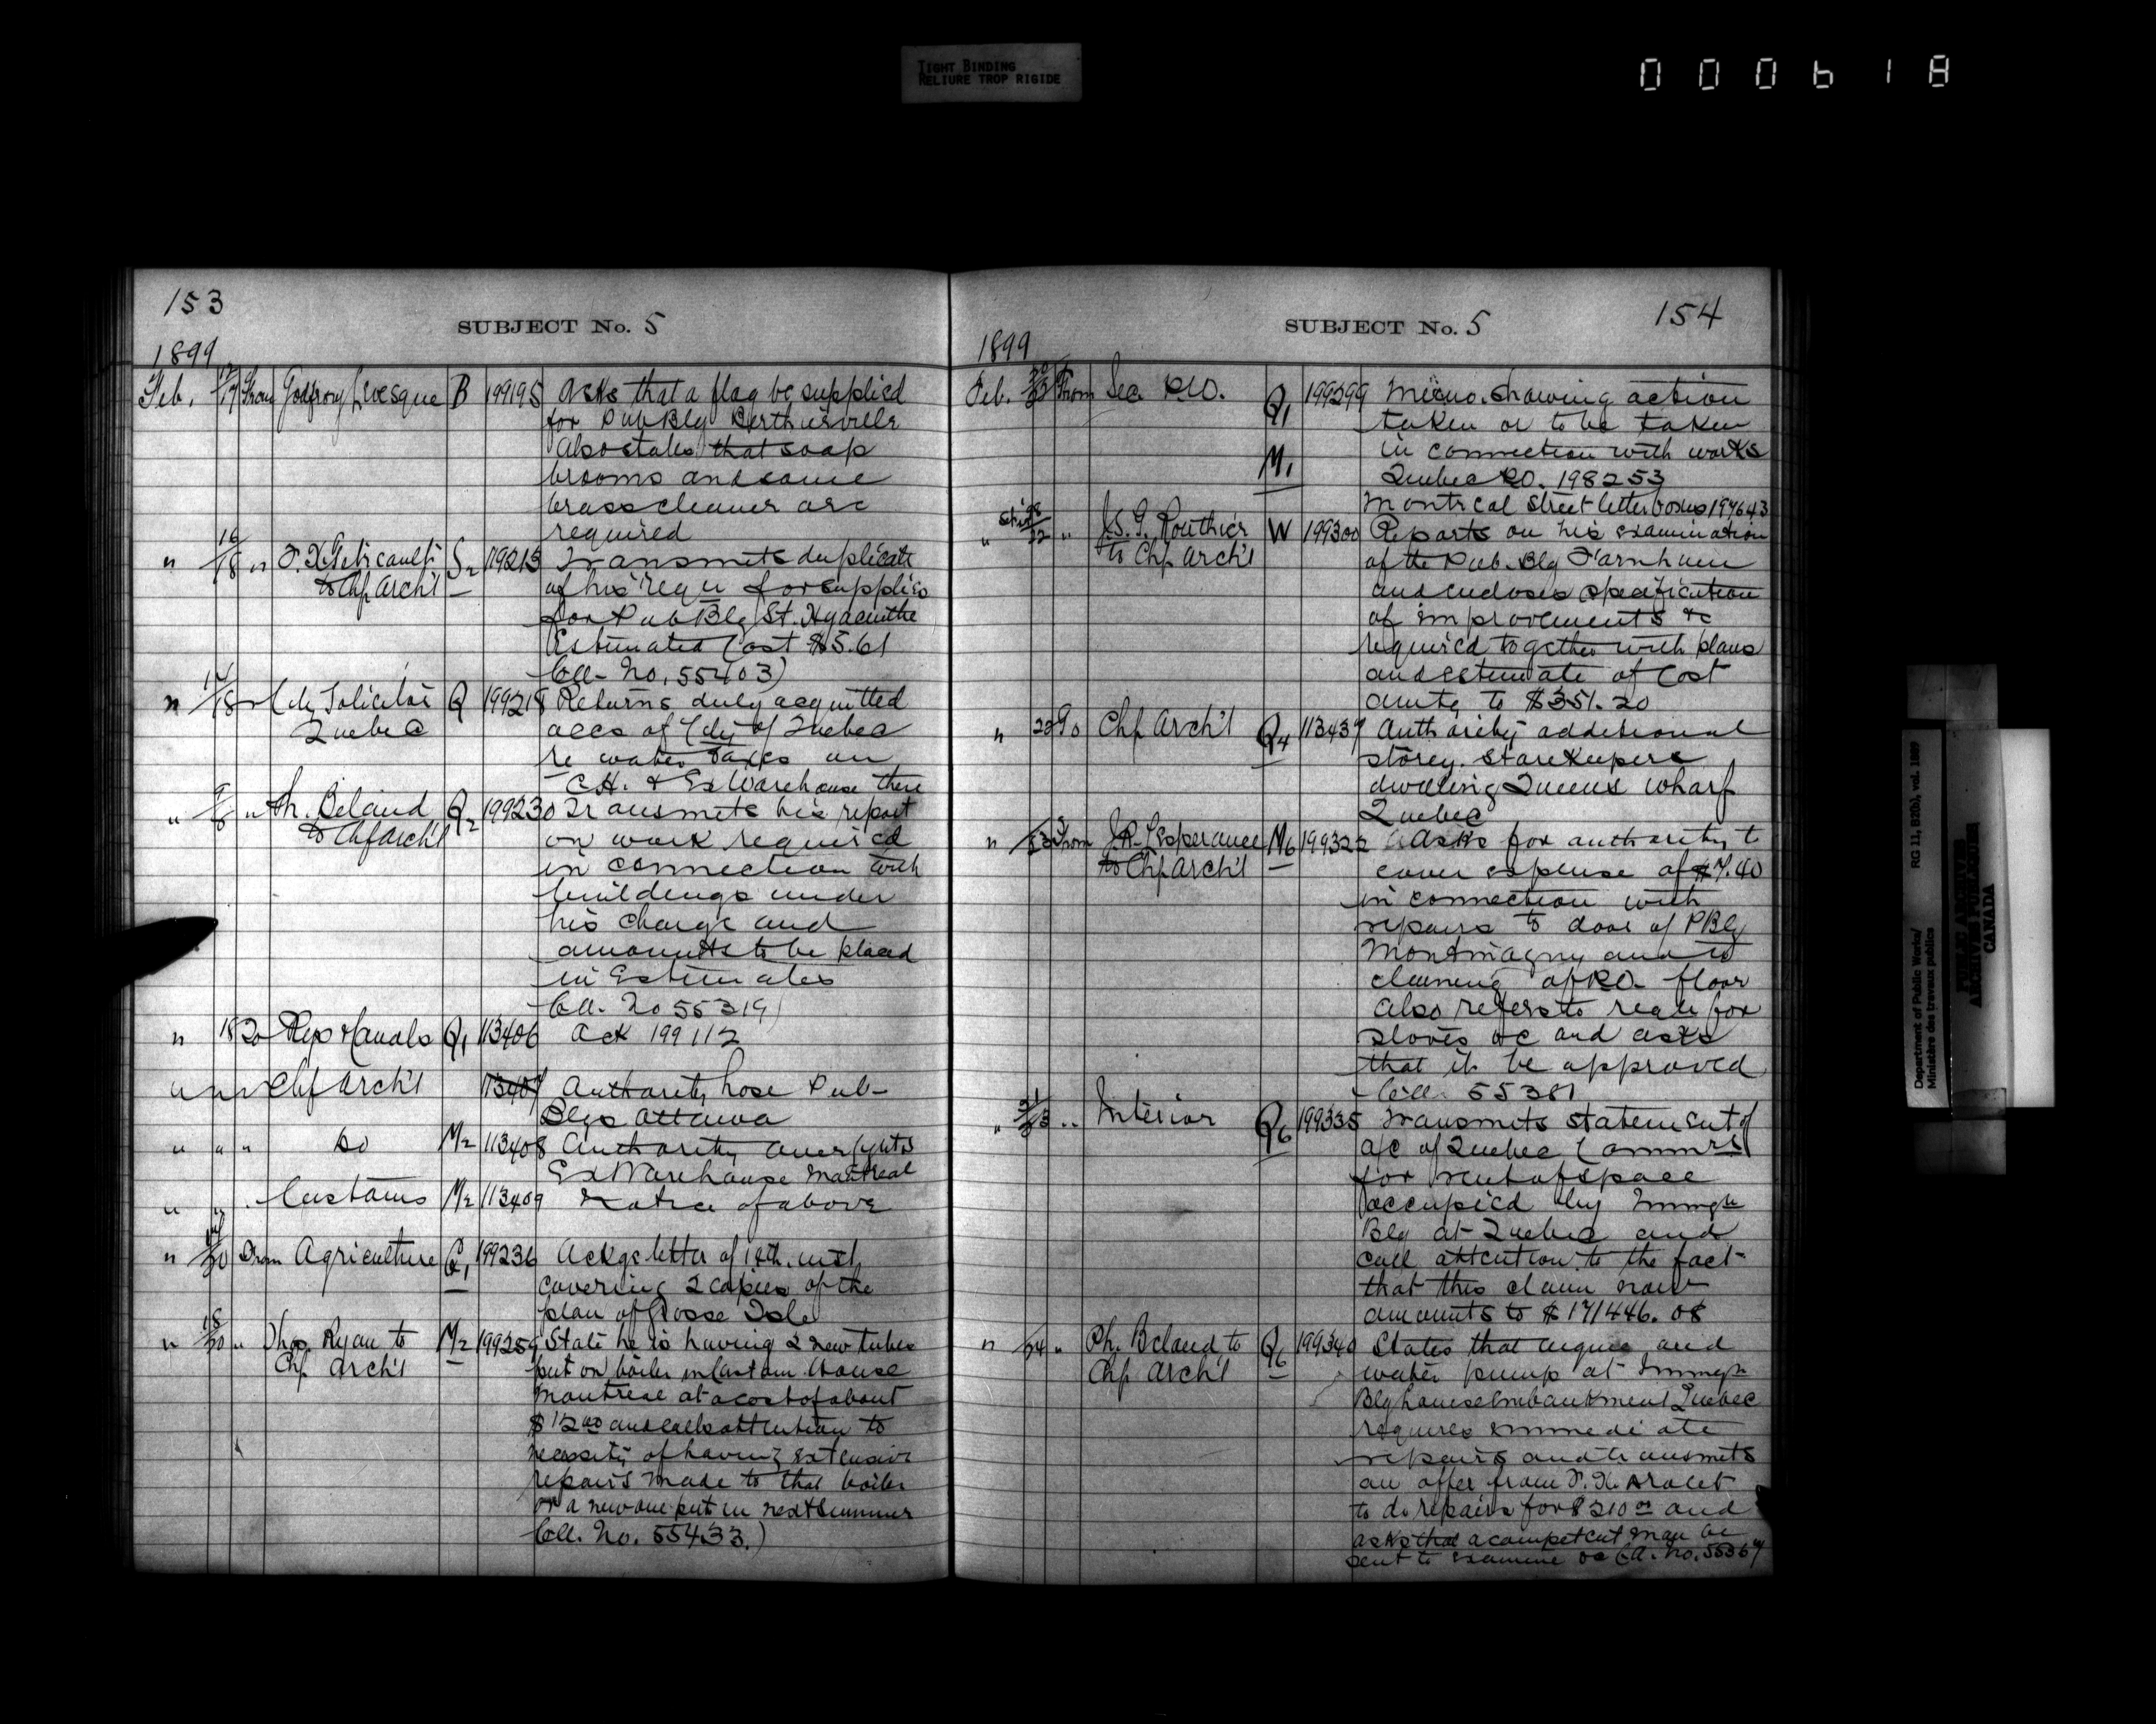 TIGHT BINDING
RELIURE TROP RIGIDE
000618
153
SUBJECT No. 5
1899
Feb. 17/17 From Godfroy Levesque B 199195 Asks that a flag be supplied
for Pub Blg Berthierville
Also states that soap
brooms and some
brass cleaner are
required
" 16/18 " to Chf Arch't S2 119213 Transmits duplicate
of his requ for supplies
for Pub Blg St. Hyacinthe
Estimated Cost $5.61
Co. No. 55403)
" /18 City Solicitor Q 199218 Returns duly acquitted
Quebec accs of City of Quebec
re water taxes on
C.H. & Ex Warehouse there
" 9/8 " Ph. Beland Q2 199230 Transmits his report
to Chf Arch't on work required
in connection with
buildings under
his charge and
amounts to be placed
in Estimates
Co. No 55319)
" 18 20 Rys & Canals Q1 113406 Ack 199112
" " " Chf Arch't 113407 Authority hose Pub-
Blgs Ottawa
" " " do M2 113408 Authority
Ex Warehouse Montreal
" " . Customs M2 113409 Notice of above
" /20 From Agriculture Q1 199236 Ackgs letter of 18th. inst
covering 2 copies of the
plan of Grosse Isle
" 18/20 " Thos. Ryan to M2 199259 State he is having 2 new tubes
Chf Arch't put on boiler in Custom House
Montreal at a cost of about
$12.00 and calls attention to
necessity of having extensive
repairs made to that boiler
or a new one put in next summer
Co. No. 55433.)
154
SUBJECT No. 5
1899
Feb. 20/ From Sec. P.O. Q1 199299 Memo. showing action
taken or to be taken
M1 in connection with works
Quebec P.O. 198253
Montreal Street letter boxes 197643
" /22 " J.S.G. Routhier W 199300 Reports on his examination
to Chf Arch't of the Pub. Blg Farnham
and encloses specification
of improvements &c
required together with plans
and estimate of Cost
amtg to $351.20
" 22 To Chf Arch't Q4 113437 Authority additional
storey. Storekeepers
dwelling Queens Wharf
Quebec
" /23 From J.R. L'Esperance M6 199322 Asks for authority to
to Chf Arch't cover expense of $7.40
in connection with
repairs to door of P Blg
Montmagny and to
cleaning of P.O. floor
Also refers to reqn for
stoves &c and asks
that it be approved
Co. 55381
" 21/23 .. Interior Q6 199335 Transmits statement of
a/c of Quebec Commrs
for rent of space
occupied by Immgn
Blg at Quebec and
call attention to the fact
that this claim now
amounts to $171446.08
" /24 " Ph. Beland to Q6 199340 States that engine and
Chf Arch't water pump at Immgn
Blg Louise Embankment Quebec
requires immediate
repairs and transmits
an offer from F.X. Drolet
to do repairs for $210.00 and
asks that a competent man be
sent to examine &c Co. No. 55367
Department of Public Works/
Ministère des travaux publics
RG 11, B2(b), vol. 1897
PUBLIC ARCHIVES
ARCHIVES PUBLIQUES
CANADA